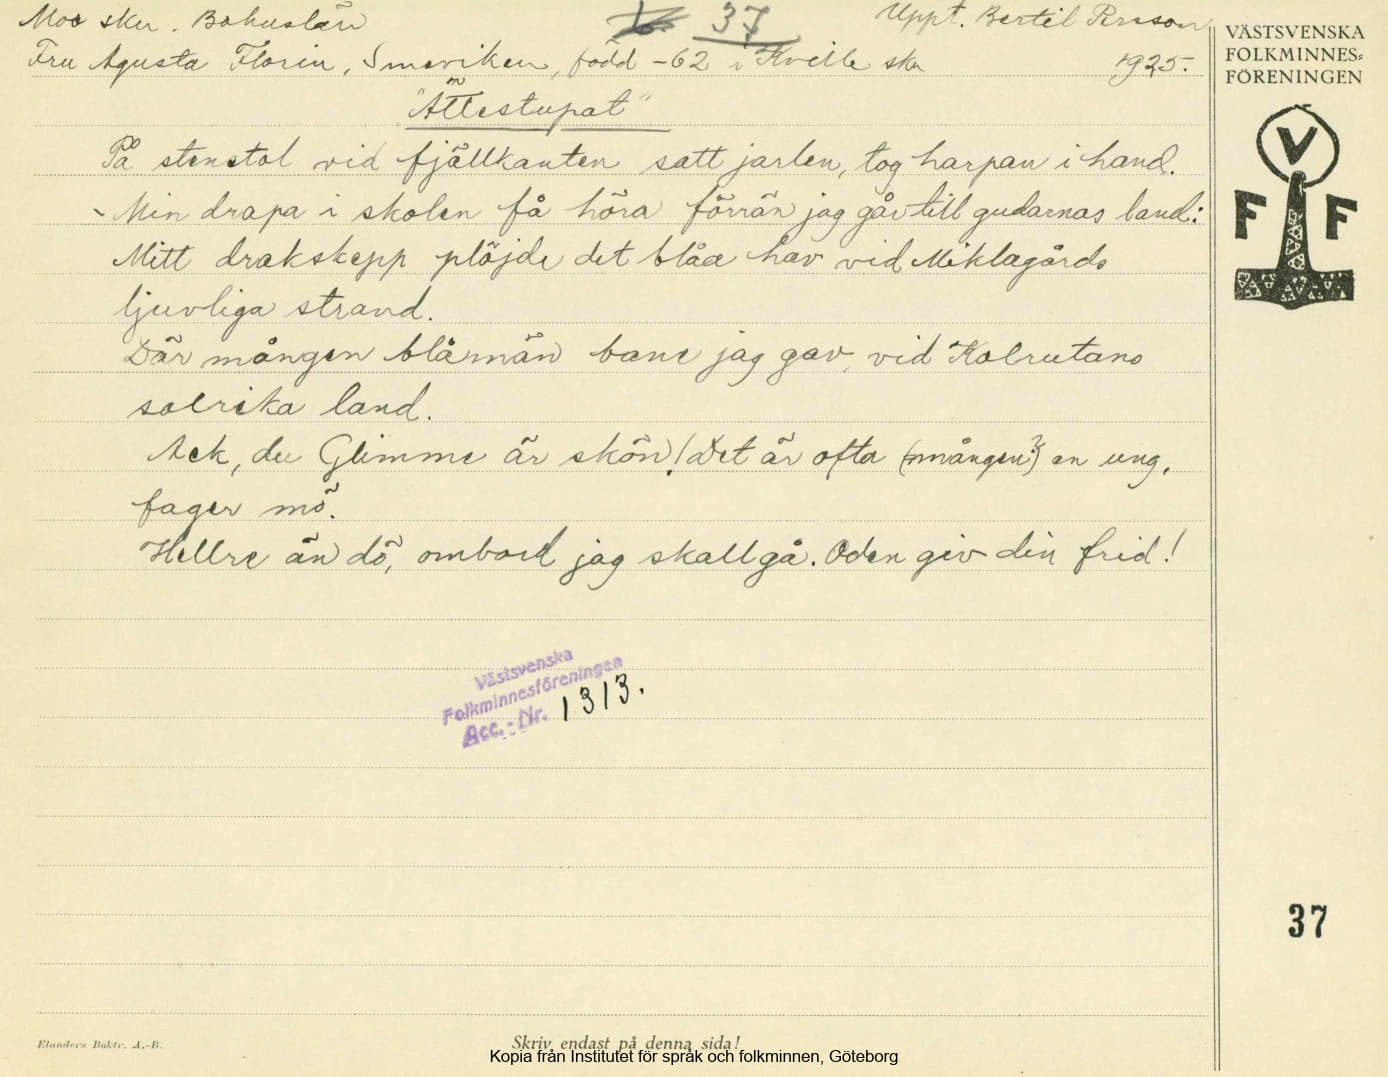 Moo skn. Bohuslän
37
Uppt. Bertil Persson
Fru Agusta Florin, Smeviken, född -62 i Kville skn
1925.
"Ättestupat"
På stenstol vid fjällkanten satt jarlen, tog harpan i hand.
- Min drapa i skolen få höra förrän jag går till gudarnas land:
Mitt drakskepp plöjde det blåa hav vid Miklagårds
ljuvliga strand.
Där mången blåmän bane jag gav, vid Kolrutans
solrika land.
Ack, du Glimme är skön! Det är ofta (mången?) en ung,
fager mö.
Hellre än dö, ombord jag skall gå. Oden giv din frid!
Västsvenska
Folkminnesföreningen
Acc.-Nr. 1313.
VÄSTSVENSKA
FOLKMINNES=
FÖRENINGEN
V
F F
37
Elanders Boktr. A.-B.
Skriv endast på denna sida!
Kopia från Institutet för språk och folkminnen, Göteborg